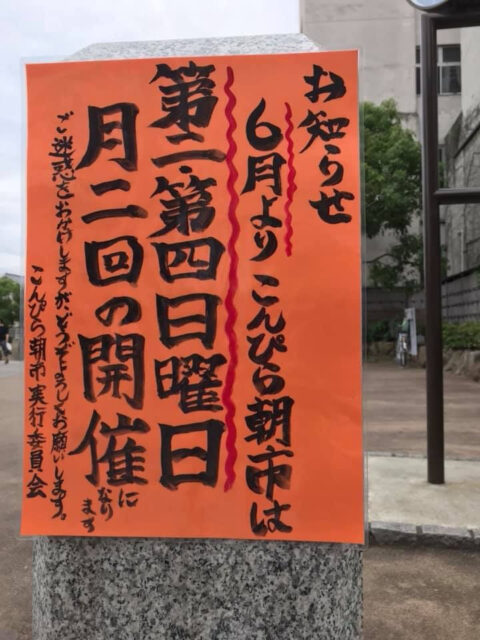 お知らせ
6月より こんぴら朝市は
第二・第四日曜日
月二回の開催になります
ご迷惑をおかけしますがどうぞよろしくお願いします。
こんぴら朝市実行委員会